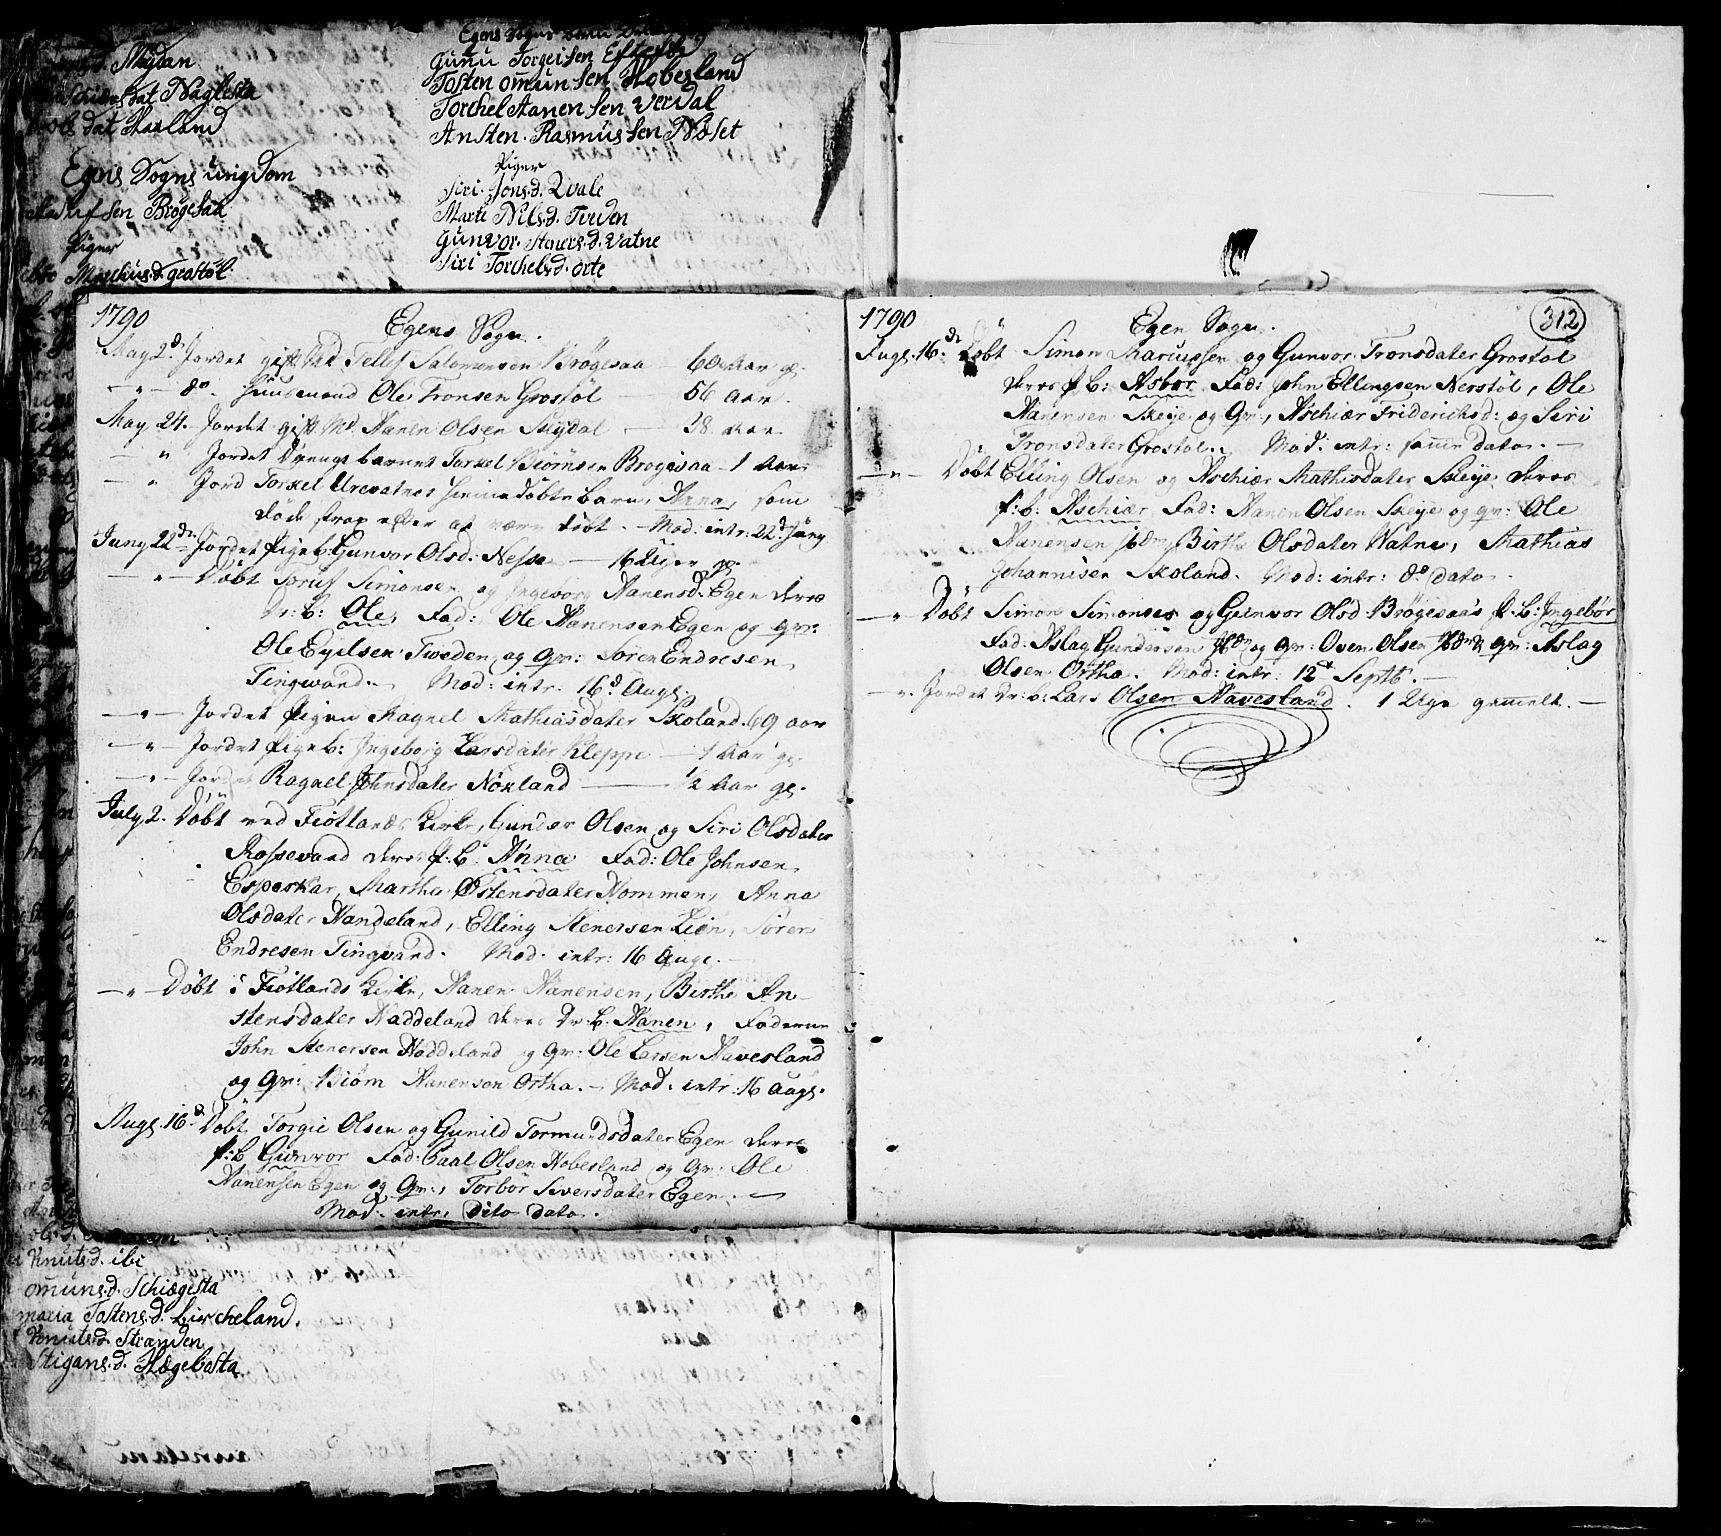 Møydan
dat Naglesta
ols dat Aaland
Egens Sogns ungdom
sen Brøgesaa
Piger
Marchus.d. grastøl
Egens Sogns
Gunu Torgeisen Eftestøl
Tosten omunsen Hobesland
Torchel Aanensen verdal
Ansten Rasmussen Nøset
Piger
Siri Jons.d. Qvale
Marte Nils.d. Tveden
Gunvor Steners.d. Vatne
Siri Torchels.d. orte
1790
Egens Sogn.
May 2d. Jordet gift Md. Tellef Salomonsen Brøgesaa — 60 Aar gl.
— " — do. Huusmand Ole Tronsen Grostøl — 56 Aar.
May 24. Jordet gift Md. Aanen Olsen Skydal — 38 Aar
— " Jordet Drenge barnet Torkel Biørnsen Brøgesaa — 1 Aar
— " Jord Torkel Urevatnes hiemedøbte barn, Anna, som
døde strax efter at være døbt. — Mod. intr: 22d. Juny
Juny 22de Jordet Pigeb. Gunvor Olsd: Nessa — 16 Uger gl.
— " — Døbt Soruf Simonsen og Ingeborg Aanensd. Egen deres
Dr: b: Ole, Fad: Ole Aanensen Egen og qv:
Ole Eyelsen Tweden og qv: Søren Endresen
Tingvand. — Mod: intr. 16d. Augs.
— " — Jordet Pigen Ragnel Mathiasdater Skoland. 69 aar
— " — Jordet Pigeb: Ingeborg Larsdater Kleppe — 1 Aar gl.
— " — Jordet Ragnel Johnsdater Nøkland — 1/2 Aar gl.
July 2. Døbt ved Fiotlands Kirke, Gunder Olsen og Siri Olsdater
Rossevand deres P. b. Anna Fad: Ole Johnsen
Esperskar, Martha Østensdater Hommen, Anna
Olsdater Handeland, Elling Stenersen Lien, Søren
Endresen Tingvand. Mod. intr: 16 Augs. —
— " — Døbt i Fiotlands Kirke, Aanen Aanensen, Birthe An-
stensdater Haddeland deres Dr. b. Aanen, Fadderne
John Stenersen Haddeland og qv: Ole Larsen Havesland
og qv: Biørn Aanenson Ortha. — Mod. intr. 16 Augs.
Augs. 16d. Døbt Torgie Olsen og Gunild Tormundsdater Egen deres
P: b Gunvor Fad: Paal Olsen Hobesland og qv: Ole
Aanensen Egen og qv:, Torbor Siversdater Egen. —
Mod: intr: dito dato.
1790
Egen Sogn.
312
Augs. 16.d Døbt Simon Marcussen og Gunvor Tronsdater Grostøl
deres P. b: Asbor Fad: John Ellingsen Nerstøl, Ole
Aanensen Skeye og qv:, Aschiær Friderichsd: og Siri
Tronsdater Grostøl. Mod: intr: samme dato. —
— " — Døbt Elling Olsen og Aschiær Mathisdater Skeye deres
P: b: Aschiær Fad: Aanen Olsen Skeye og qv: Ole
Aanensen ibdm Birthe Olsdater Vatne, Mathias
Johannisen Skoland. Mod: intr: do dato.
— " Døbt Simon Simonsen og Gunvor Olsd Brøgesaas P. b: Ingebor
Fad: Aslag Gundersen ibdm og qv: Oven Olsen ibdm & qv: Aslag
Olsen Ortha. Mod: intr: 12te Septb. —
— ". Jordet Dr: b: Lars Olsen Havesland. 1 Uge gammelt. —
ols.d.
Knuts.d. ibi
omuns.d. Schiægesta
maria Tostens.d. Lircheland.
Knuts.d. Stranden
Stigans.d. Hægebosta